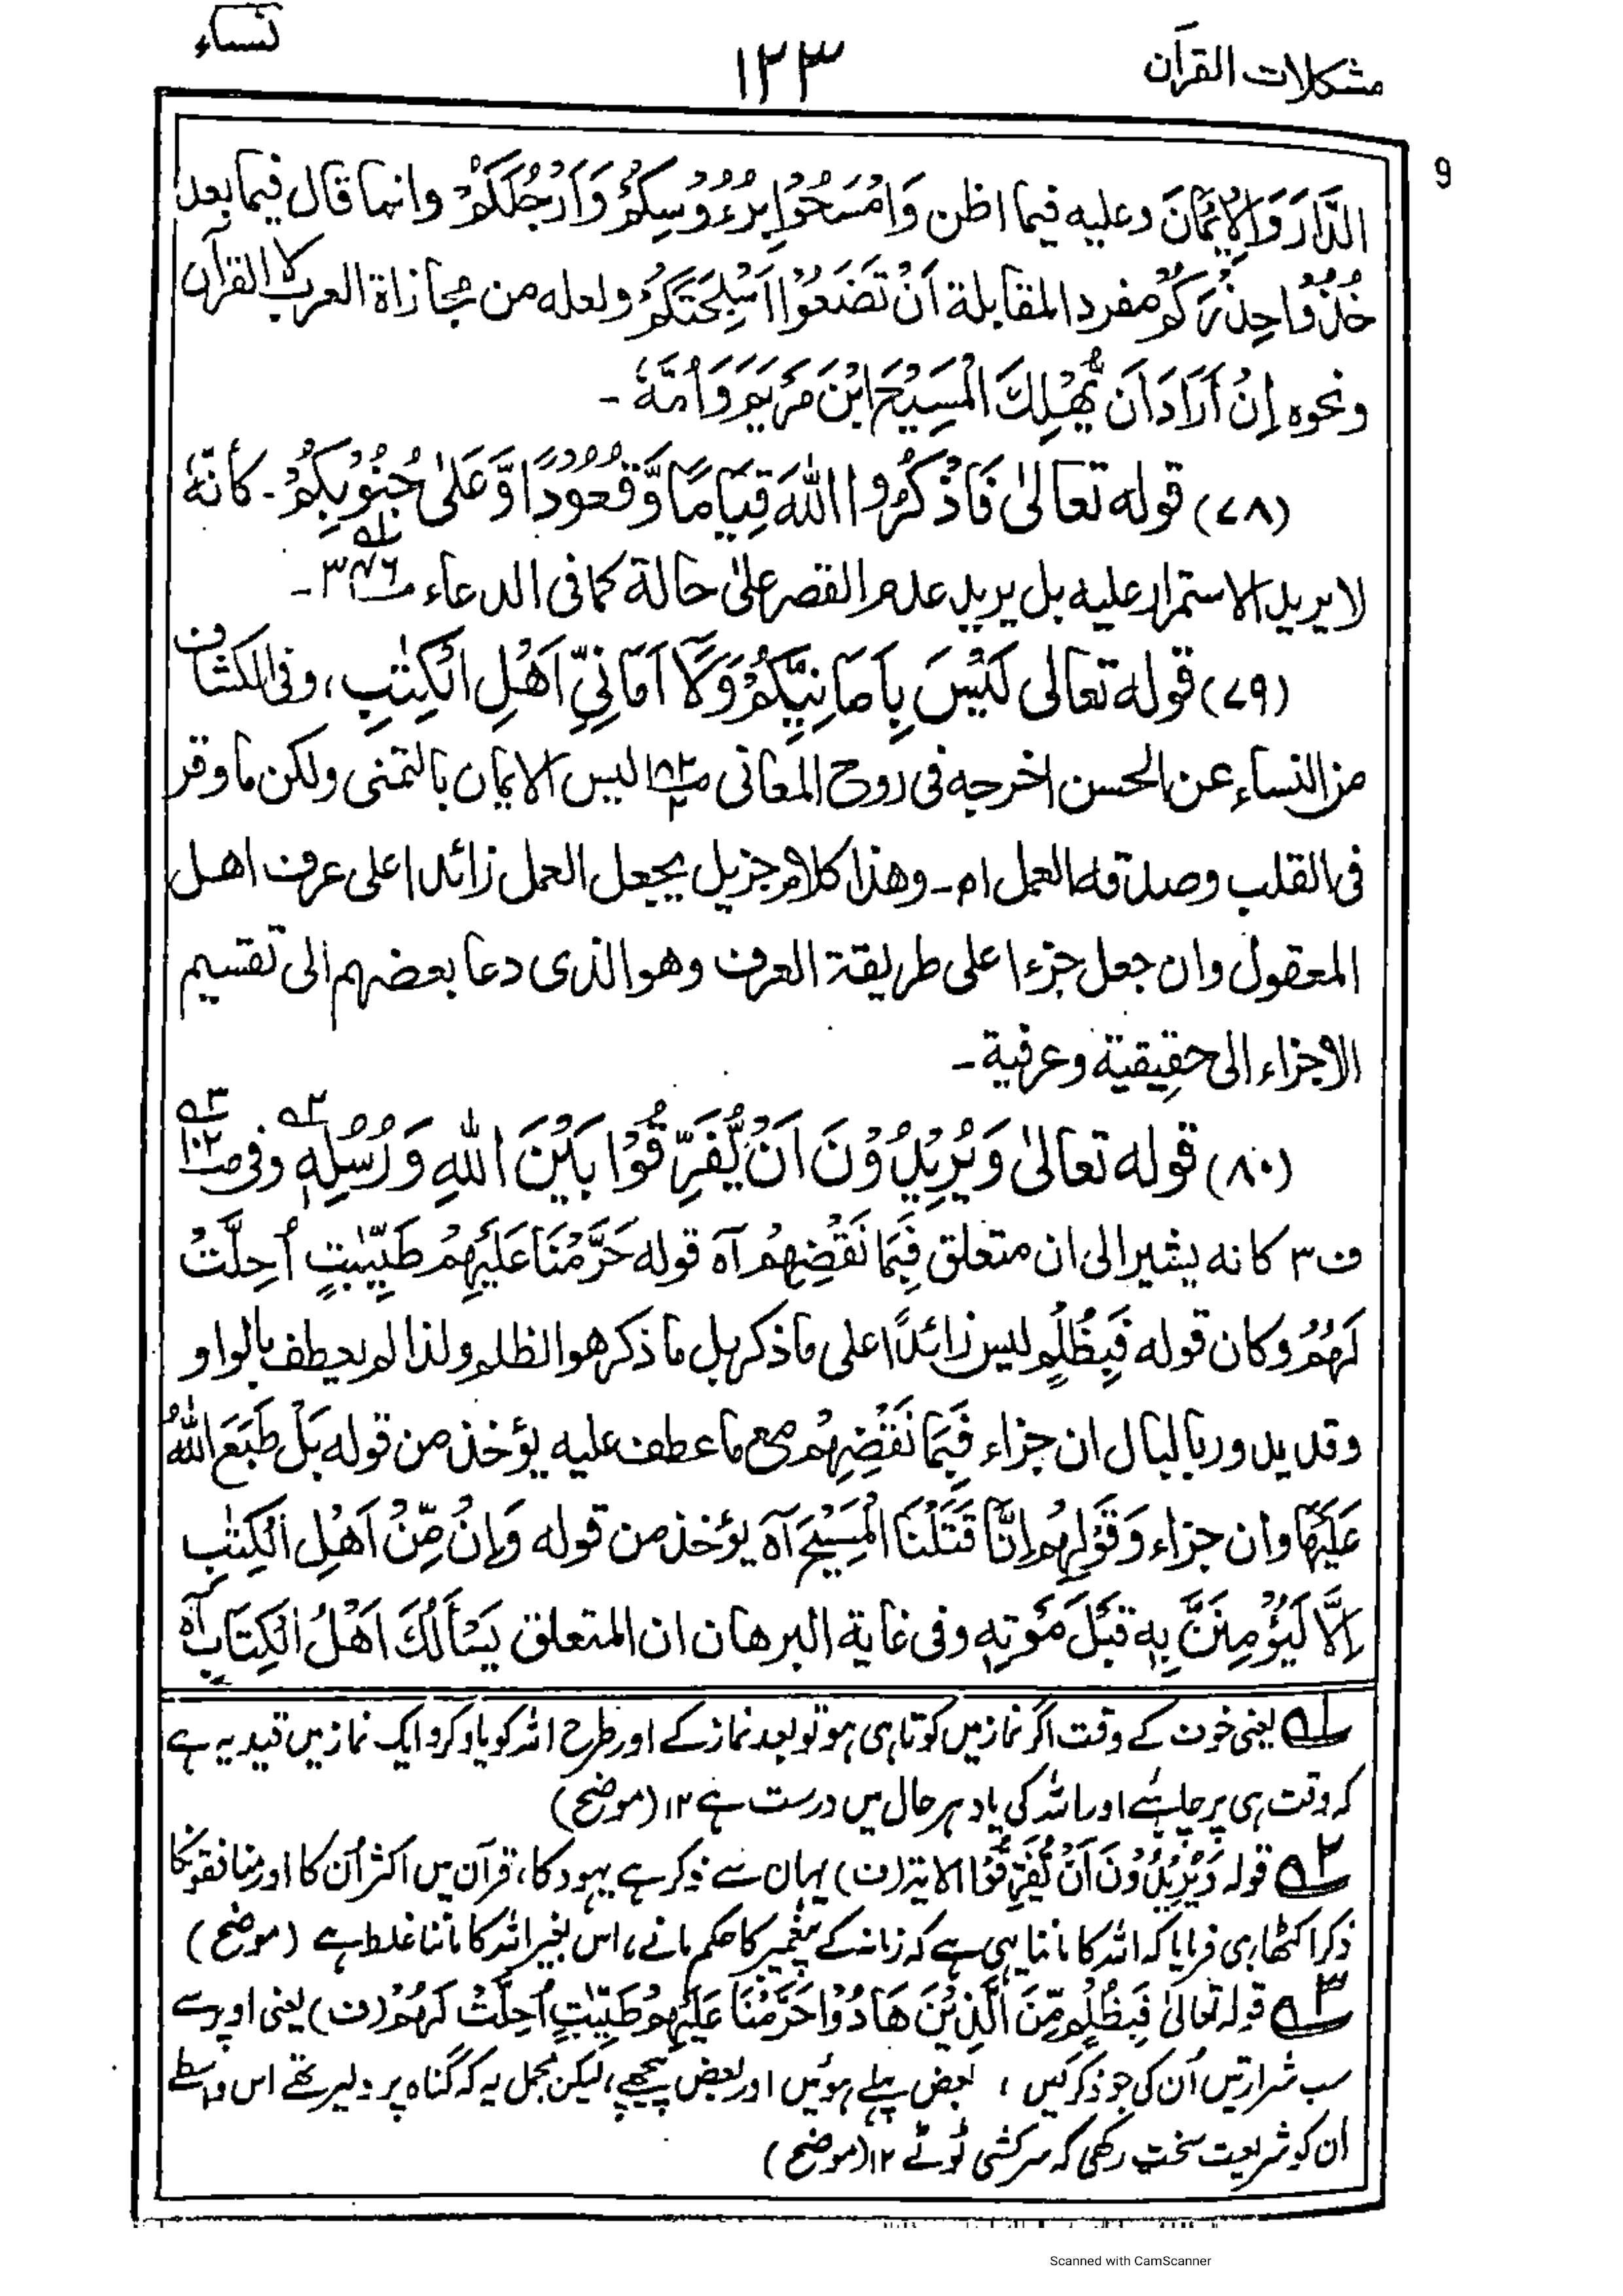 مشكلات القرآن
١٢٣
نساء
9
الدَّارَ وَالْاِيْمَانَ وعليه فيما اظن وَامْسَحُوْا بِرُءُوْسِكُمْ وَاَرْجُلَكُمْ وانما قال فيما بعد
خُذُوْا حِذْرَكُمْ مفردا لمقابلة اَنْ تَضَعُوْا اَسْلِحَتَكُمْ ولعله من مجازاة العرب لا القرآن
ونحوه اِنْ اَرَادَ اَنْ يُّهْلِكَ الْمَسِيْحَ ابْنَ مَرْيَمَ وَاُمَّهٗ ۔
(٧٨) قوله تعالىٰ فَاذْكُرُوا اللّٰهَ قِيَامًا وَّقُعُوْدًا وَّعَلٰى جُنُوْبِكُمْ ۔ كأنهٗ
لا يريد الاستمرار عليه بل يريد عدم القصر علىٰ حالة كما فى الدعاء ص٣٧٦ ۔ ؎١
(٧٩) قوله تعالى لَيْسَ بِاَمَانِيِّكُمْ وَلَآ اَمَانِيِّ اَهْلِ الْكِتٰبِ، وفى الكشاف
من النساء عن الحسن اخرجه فى روح المعانى ليس الايمان بالتمنى ولكن ما وقر
فى القلب وصدقه العمل اھ ۔ وهذا كلام جزيل يجعل العمل زائدا على عرف اهل
المعقول وان جعل جزءا على طريقة العرف وهو الذى دعا بعضهم الى تقسيم
الاجزاء الى حقيقية وعرفية ۔
(٨٠) قوله تعالىٰ وَيُرِيْدُوْنَ اَنْ يُّفَرِّقُوْا بَيْنَ اللّٰهِ وَرُسُلِهٖ ؎٢ وفى ص١٠٢ ؎٣
ف٣ كانه يشير الى ان متعلق فَبِمَا نَقْضِهِمْ آه قوله حَرَّمْنَا عَلَيْهِمْ طَيِّبٰتٍ اُحِلَّتْ
لَهُمْ وكان قوله فَبِظُلْمٍ ليس زائدًا على ما ذكر بل ما ذكر هو الظلم ولذا لم يعطف بالواو
وقد يدور بالبال ان جزاء فَبِمَا نَقْضِهِمْ مع ما عطف عليه يؤخذ من قوله بَلْ طَبَعَ اللّٰهُ
عَلَيْهَا وان جزاء وَقَوْلِهِمْ اِنَّا قَتَلْنَا الْمَسِيْحَ آه يؤخذ من قوله وَاِنْ مِّنْ اَهْلِ الْكِتٰبِ
اِلَّا لَيُؤْمِنَنَّ بِهٖ قَبْلَ مَوْتِهٖ وفى غاية البرهان ان المتعلق يَسْأَلُكَ اَهْلُ الْكِتَابِ آه
؎١ یعنی خوف کے وقت اگر نماز میں کوتاہی ہو تو بعد نماز کے اور طرح اللہ کو یاد کرو ایک نماز میں قید یہ ہے
کہ وقت ہی پر چاہئے اور اللہ کی یاد ہر حال میں درست ہے ١٢ (موضح)
؎٢ قولہ وَيُرِيْدُوْنَ اَنْ يُّفَرِّقُوْا الایۃ (ف) یہاں سے ذکر ہے یہود کا، قرآن میں اکثر اُن کا اور منافقوں کا
ذکر اکٹھا ہی فرمایا کہ اللہ کا ماننا یہی ہے کہ زمانہ کے پیغمبر کا حکم مانے، اس بغیر اللہ کا ماننا غلط ہے (موضح)
؎٣ قولہ تعالیٰ فَبِظُلْمٍ مِّنَ الَّذِيْنَ هَادُوْا حَرَّمْنَا عَلَيْهِمْ طَيِّبٰتٍ اُحِلَّتْ لَهُمْ (ف) یعنی اوپر سے
سب شرارتیں اُن کی جو ذکر کیں ، بعض پہلے ہوئیں اور بعض پیچھے، لیکن مجمل یہ کہ گناہ پر دلیر تھے اس واسطے
ان کو شریعت سخت رکھی کہ سرکشی ٹوٹے ١٢ (موضح)
Scanned with CamScanner